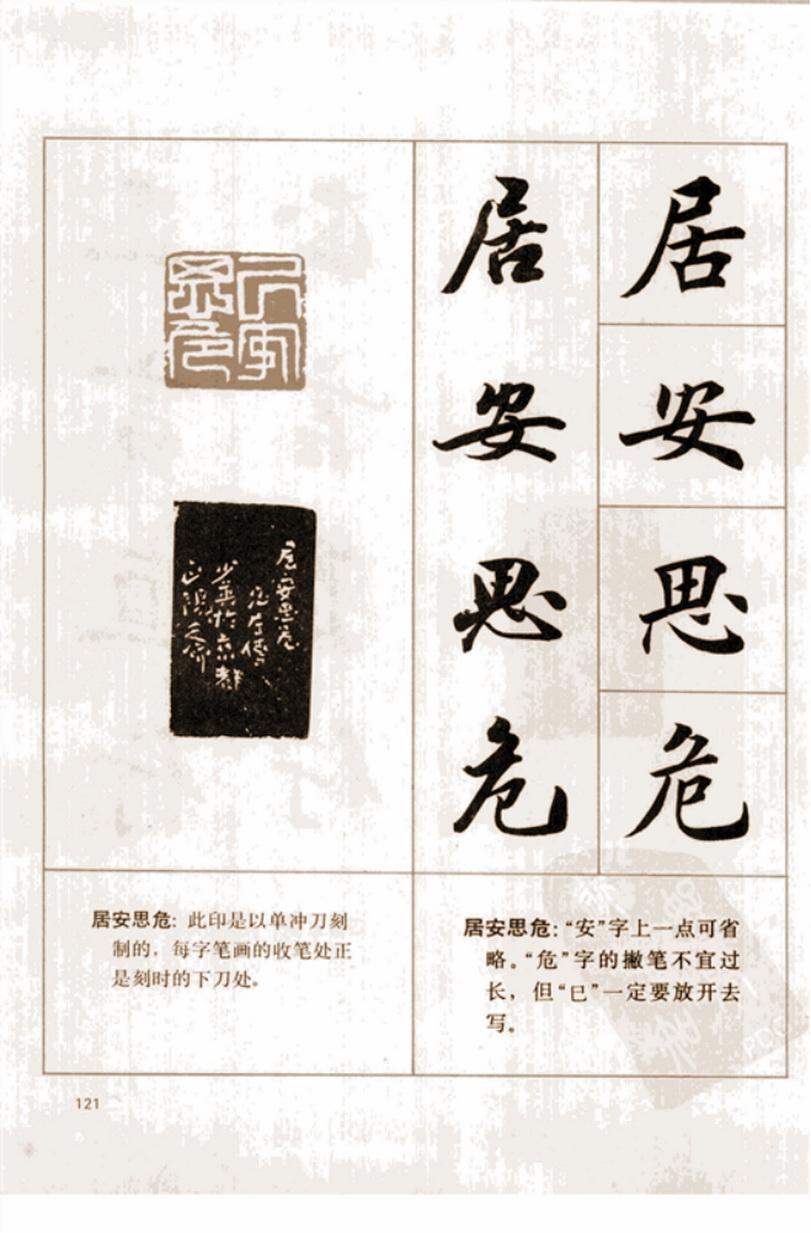 居安思危
居安思危
居安思危
居安思危
居安思危：此印是以单冲刀刻
制的，每字笔画的收笔处正
是刻时的下刀处。
居安思危：“安”字上一点可省
略。“危”字的撇笔不宜过
长，但“巳”一定要放开去
写。
121